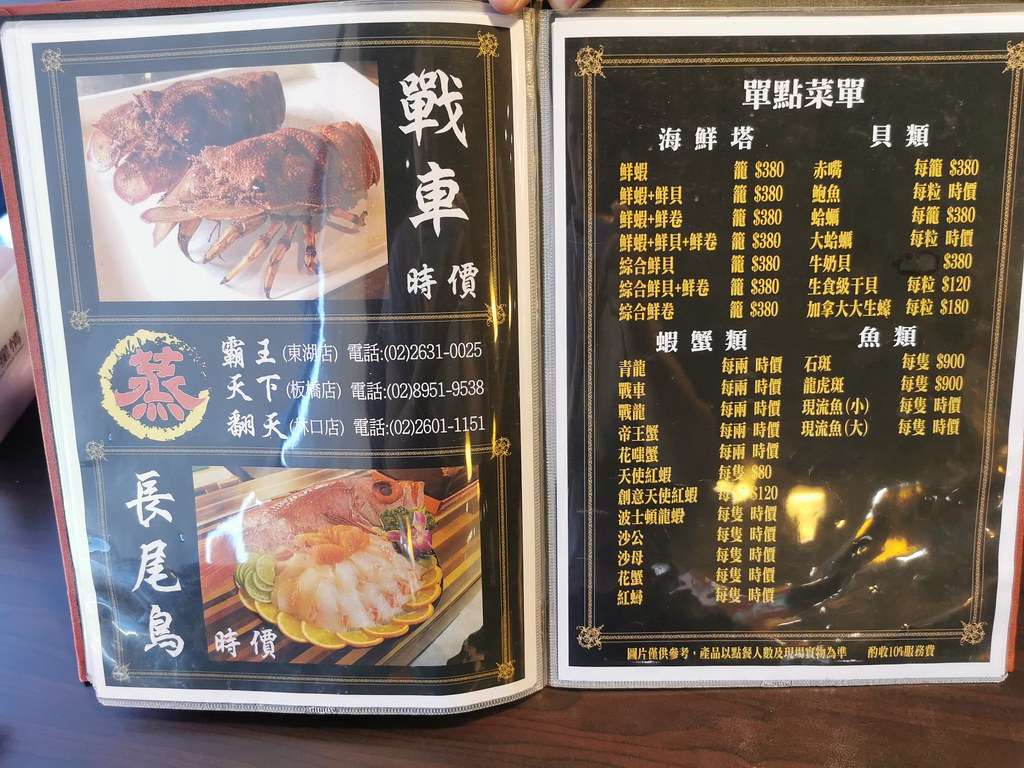 戰車
時價
蒸
霸王(東湖店) 電話:(02)2631-0025
天下(板橋店) 電話:(02)8951-9538
翻天(林口店) 電話:(02)2601-1151
長尾鳥
時價
單點菜單
海鮮塔
鮮蝦 籠 $380
鮮蝦+鮮貝 籠 $380
鮮蝦+鮮卷 籠 $380
鮮蝦+鮮貝+鮮卷 籠 $380
綜合鮮貝 籠 $380
綜合鮮貝+鮮卷 籠 $380
綜合鮮卷 籠 $380
貝類
赤嘴 每籠 $380
鮑魚 每粒 時價
蛤蠣 每籠 $380
大蛤蠣 每粒 時價
牛奶貝 $380
生食級干貝 每粒 $120
加拿大大生蠔 每粒 $180
蝦蟹類
青龍 每兩 時價
戰車 每兩 時價
戰龍 每兩 時價
帝王蟹 每兩 時價
花咪蟹 每兩 時價
天使紅蝦 每隻 $80
創意天使紅蝦 每隻 $120
波士頓龍蝦 每隻 時價
沙公 每隻 時價
沙母 每隻 時價
花蟹 每隻 時價
紅蟳 每隻 時價
魚類
石斑 每隻 $900
龍虎斑 每隻 $900
現流魚(小) 每隻 時價
現流魚(大) 每隻 時價
圖片僅供參考，產品以點餐人數及現場實物為準 酌收10%服務費